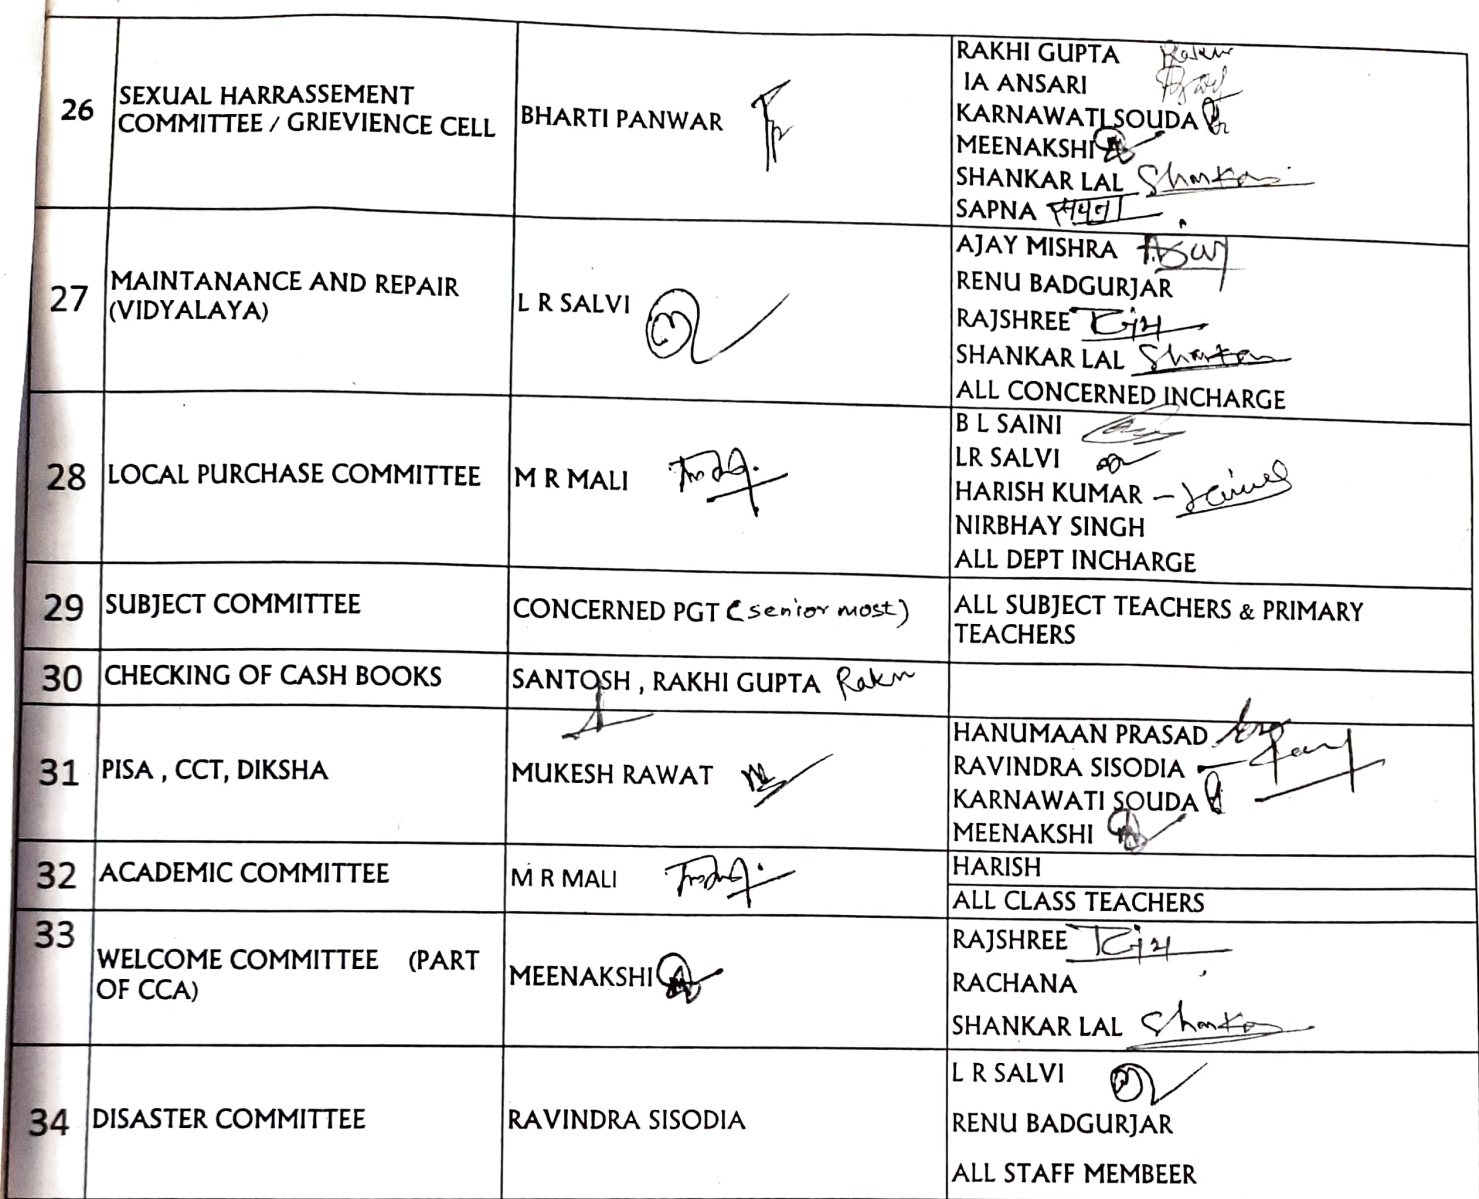 26
SEXUAL HARRASSEMENT
COMMITTEE / GRIEVIENCE CELL
BHARTI PANWAR
RAKHI GUPTA Rakhi
IA ANSARI
KARNAWATI SOUDA
MEENAKSHI
SHANKAR LAL Shankar
SAPNA सपना
27
MAINTANANCE AND REPAIR
(VIDYALAYA)
L R SALVI
AJAY MISHRA
RENU BADGURJAR
RAJSHREE
SHANKAR LAL Shankar
ALL CONCERNED INCHARGE
28
LOCAL PURCHASE COMMITTEE
M R MALI
B L SAINI
LR SALVI
HARISH KUMAR –
NIRBHAY SINGH
ALL DEPT INCHARGE
29
SUBJECT COMMITTEE
CONCERNED PGT (senior most)
ALL SUBJECT TEACHERS & PRIMARY
TEACHERS
30
CHECKING OF CASH BOOKS
SANTOSH , RAKHI GUPTA Rakhi
31
PISA , CCT, DIKSHA
MUKESH RAWAT
HANUMAAN PRASAD
RAVINDRA SISODIA
KARNAWATI SOUDA
MEENAKSHI
32
ACADEMIC COMMITTEE
M R MALI
HARISH
ALL CLASS TEACHERS
33
WELCOME COMMITTEE (PART
OF CCA)
MEENAKSHI
RAJSHREE
RACHANA
SHANKAR LAL Shankar
34
DISASTER COMMITTEE
RAVINDRA SISODIA
L R SALVI
RENU BADGURJAR
ALL STAFF MEMBEER